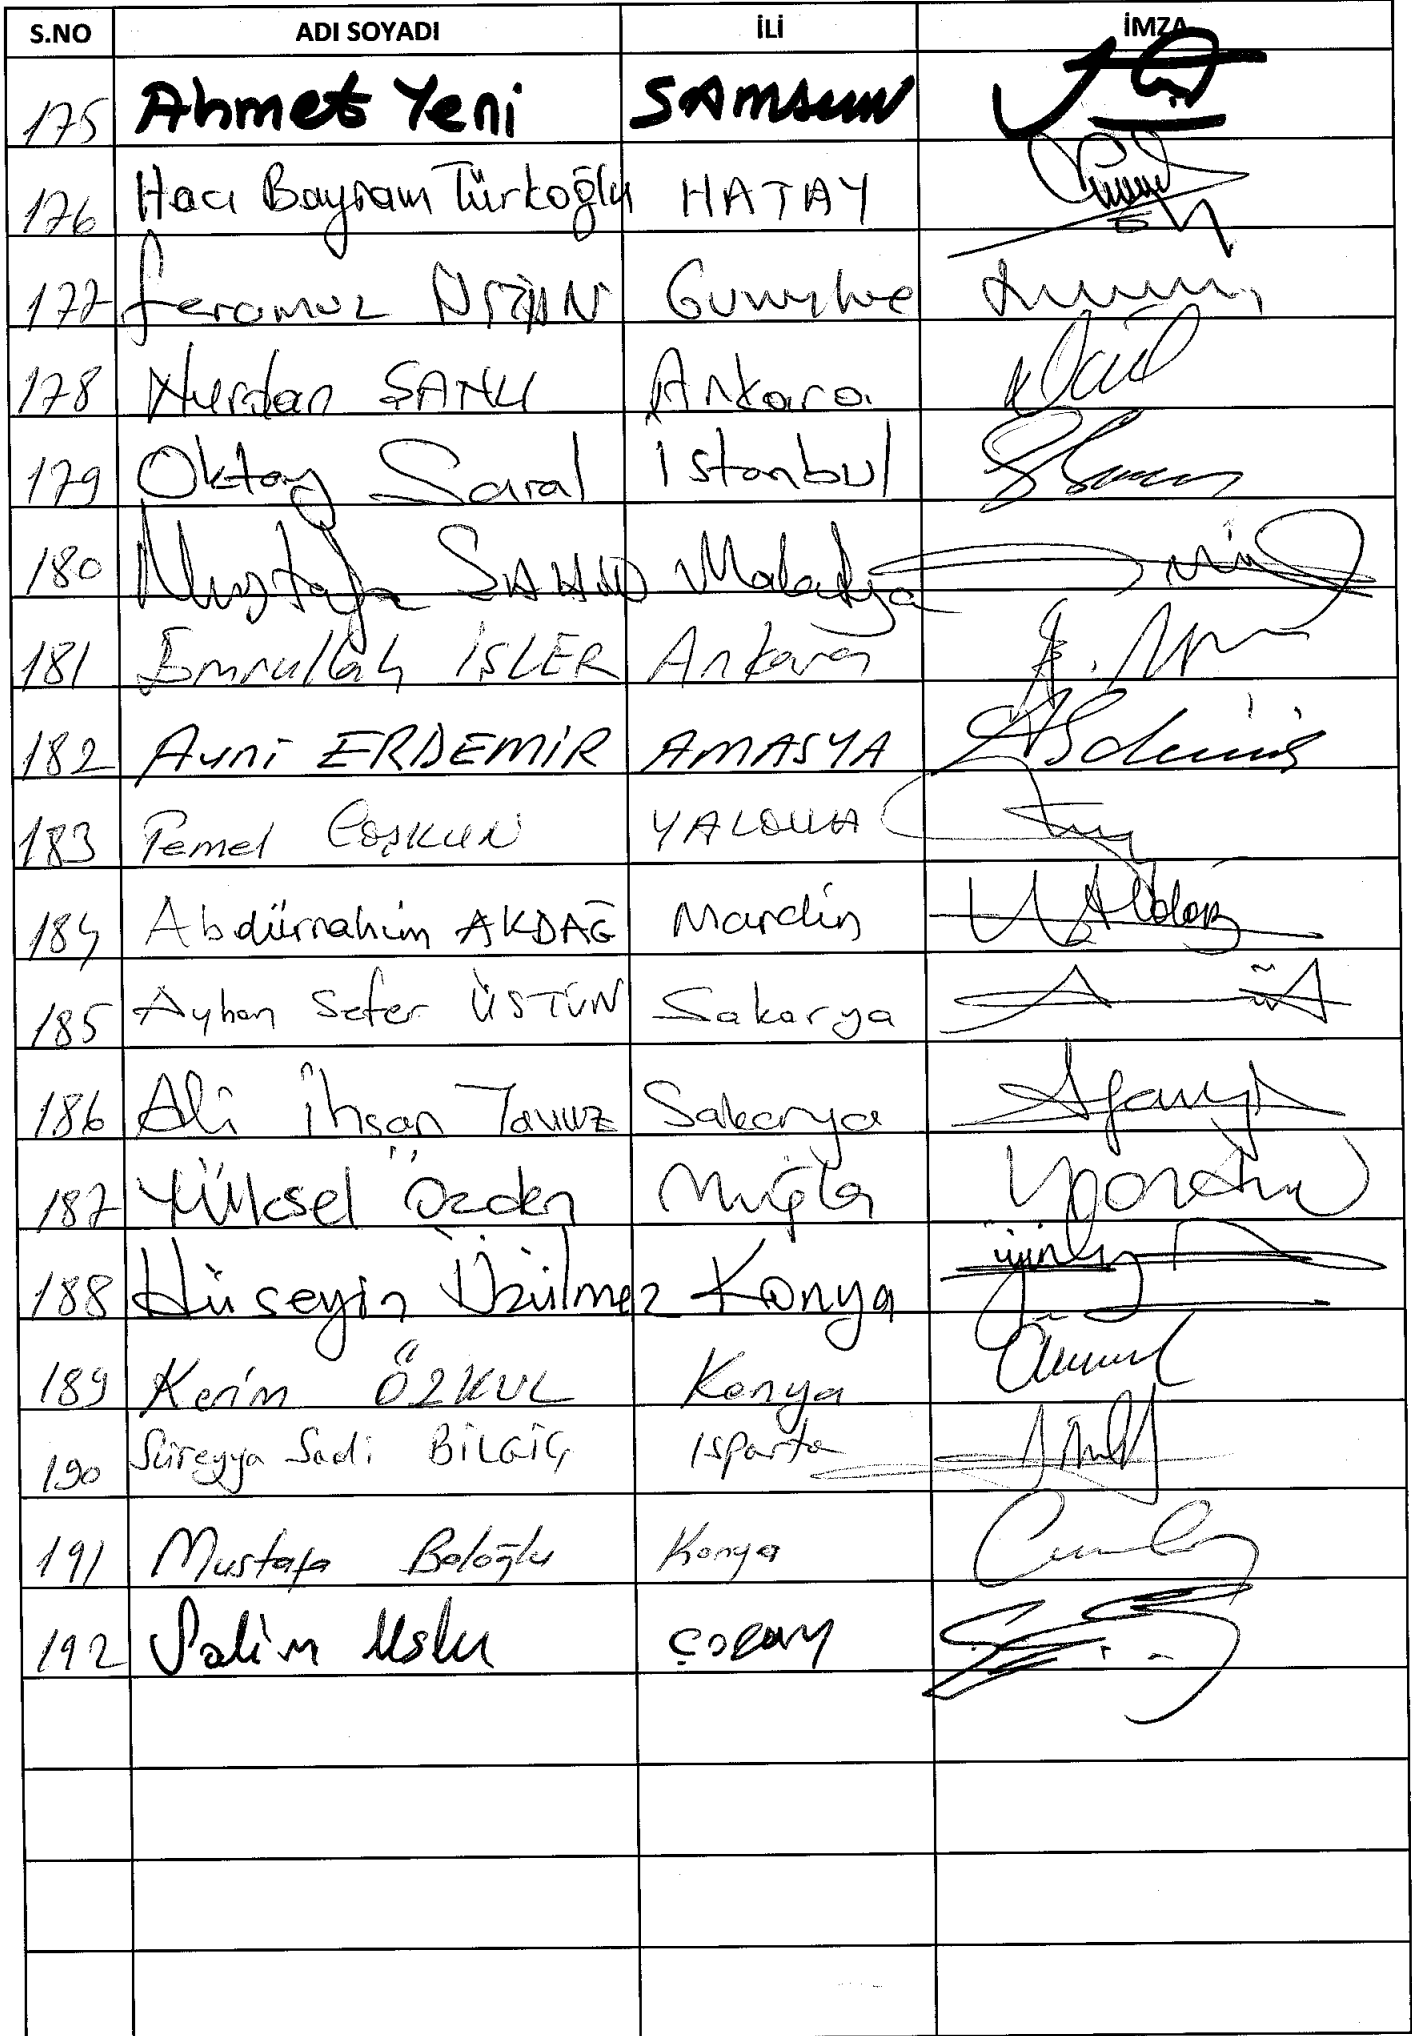 S.NO ADI SOYADI İLİ İMZA
175 Ahmet Yeni SAMSUN
176 Hacı Bayram Türkoğlu HATAY
177 Feramuz
178 Nurdan ŞANLI Ankara
179 Oktay Saral İstanbul
180 Mustafa ŞAHİN Malatya
181 Emrullah İŞLER Ankara
182 Avni ERDEMİR AMASYA
183 Temel COŞKUN YALOVA
184 Abdürrahim AKDAĞ Mardin
185 Ayhan Sefer ÜSTÜN Sakarya
186 Ali İhsan Yavuz Sakarya
187 Yüksel Özden Muğla
188 Hüseyin Üzülmez Konya
189 Kerim ÖZKUL Konya
190 Süreyya Sadi BİLGİÇ Isparta
191 Mustafa Baloğlu Konya
192 Salim Uslu ÇORUM